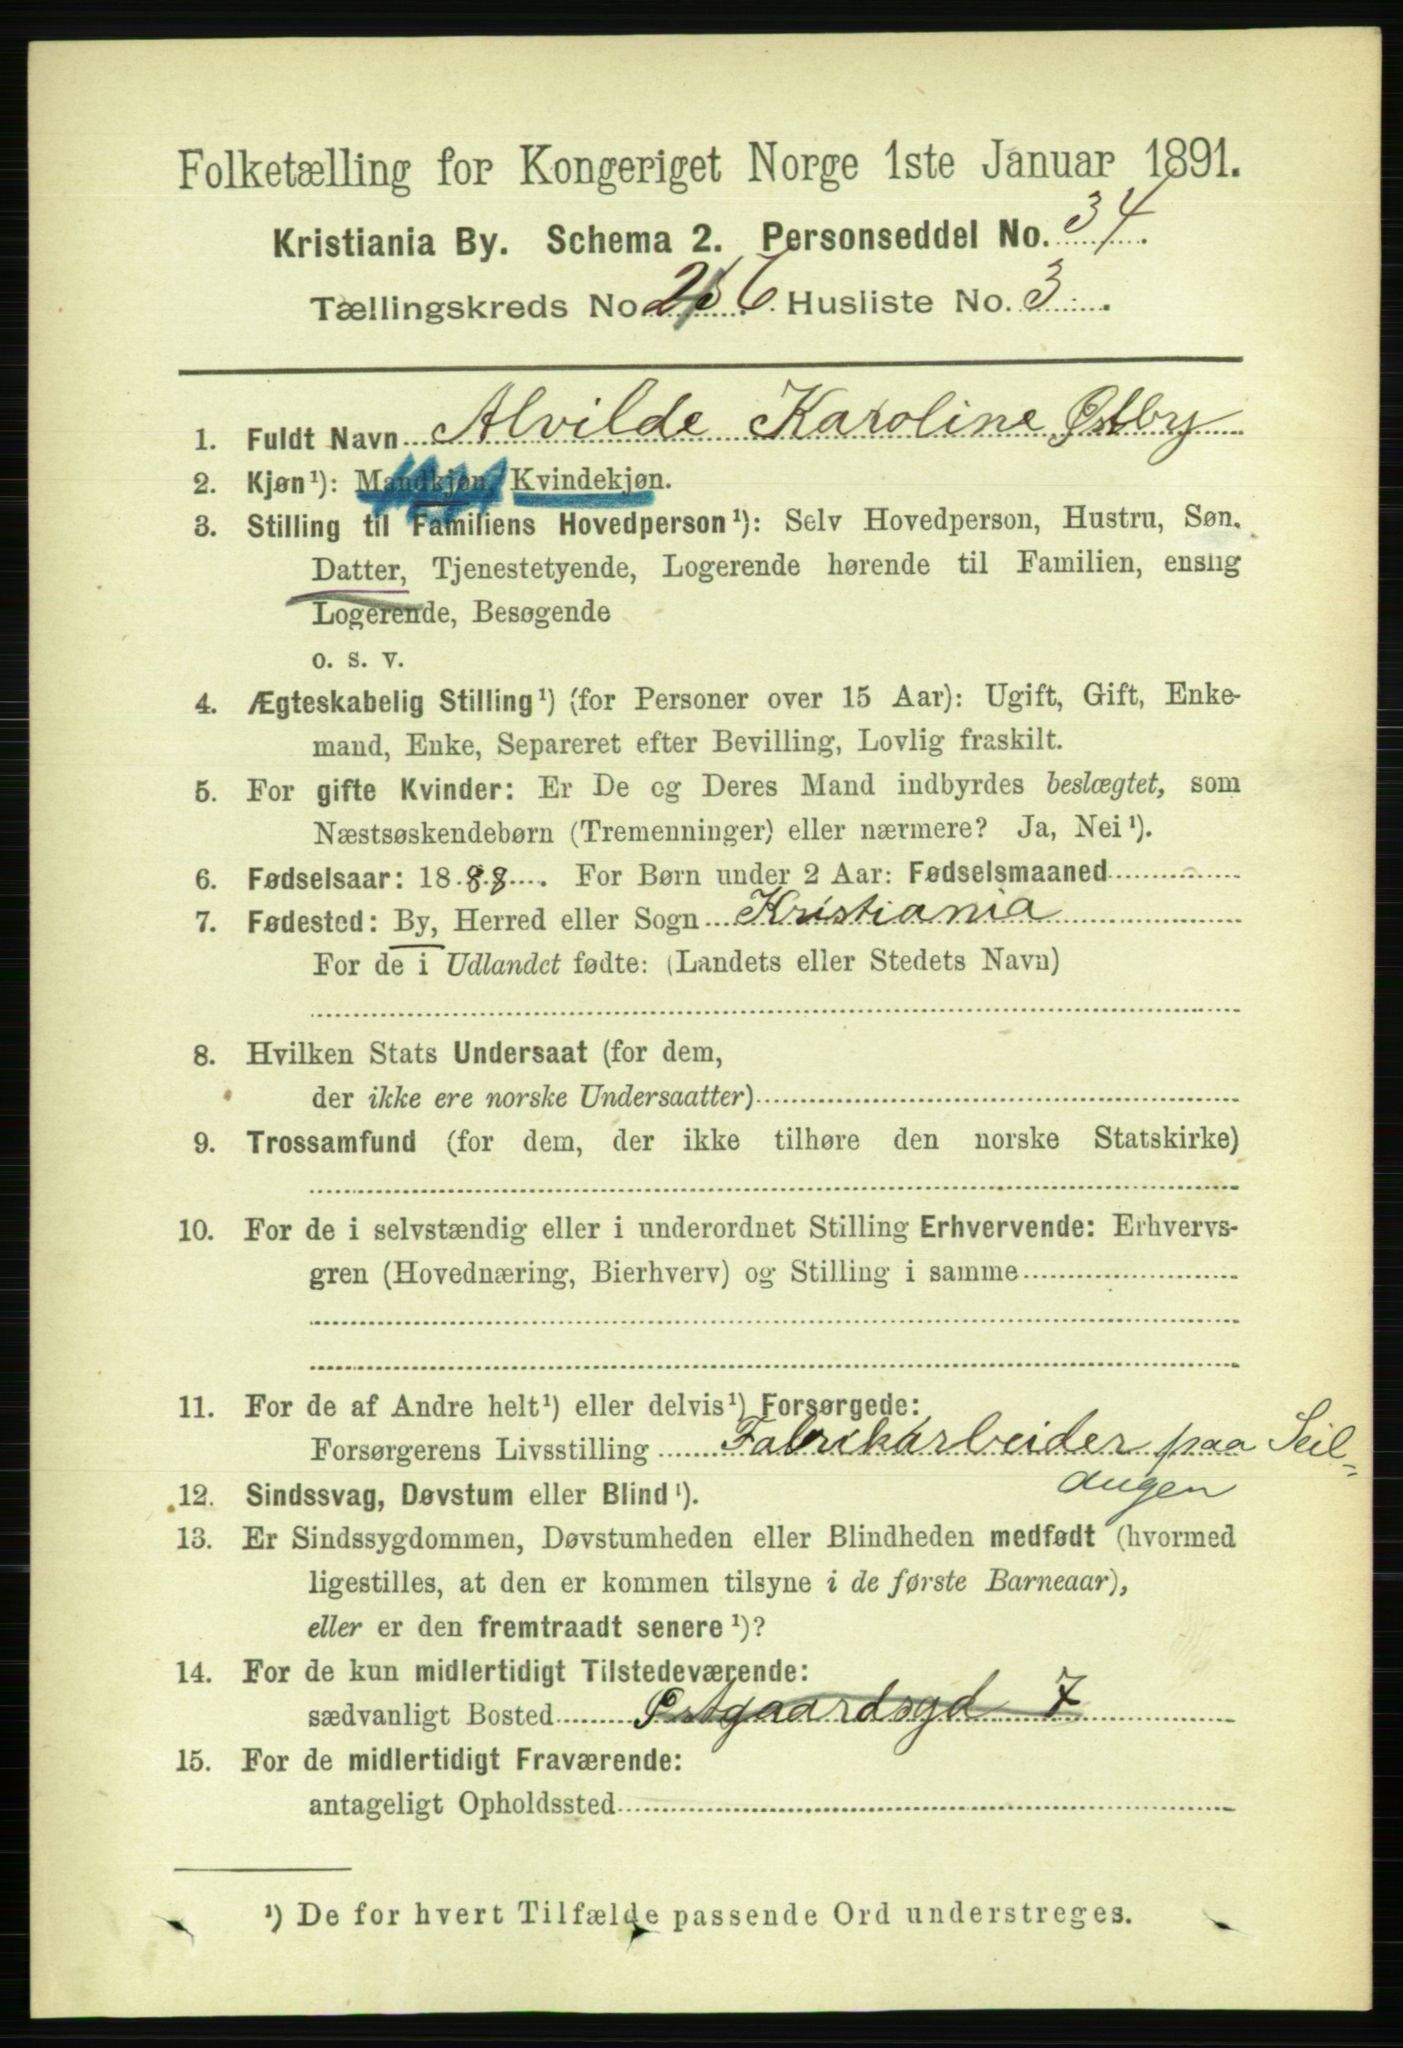 Folketælling for Kongeriget Norge 1ste Januar 1891.
Kristiania By. Schema 2. Personseddel No. 34.
Tællingskreds No. 26. Husliste No. 3.
1. Fuldt Navn Alvilde Karoline Østby
2. Kjøn¹): Mandkjøn, Kvindekjøn.
3. Stilling til Familiens Hovedperson¹): Selv Hovedperson, Hustru, Søn.
Datter, Tjenestetyende, Logerende hørende til Familien, enslig
Logerende, Besøgende
o. s. v.
4. Ægteskabelig Stilling¹) (for Personer over 15 Aar): Ugift, Gift, Enke-
mand, Enke, Separeret efter Bevilling, Lovlig fraskilt.
5. For gifte Kvinder: Er De og Deres Mand indbyrdes beslægtet, som
Næstsøskendebørn (Tremenninger) eller nærmere? Ja, Nei¹).
6. Fødselsaar: 1888. For Børn under 2 Aar: Fødselsmaaned
7. Fødested: By, Herred eller Sogn Kristiania
For de i Udlandet fødte: (Landets eller Stedets Navn)
8. Hvilken Stats Undersaat (for dem,
der ikke ere norske Undersaatter)
9. Trossamfund (for dem, der ikke tilhøre den norske Statskirke)
10. For de i selvstændig eller i underordnet Stilling Erhvervende: Erhvervs-
gren (Hovednæring, Bierhverv) og Stilling i samme
11. For de af Andre helt¹) eller delvis¹) Forsørgede:
Forsørgerens Livsstilling Fabrikarbeider paa Seil-
dugen
12. Sindssvag, Døvstum eller Blind¹).
13. Er Sindssygdommen, Døvstumheden eller Blindheden medfødt (hvormed
ligestilles, at den er kommen tilsyne i de første Barneaar),
eller er den fremtraadt senere¹)?
14. For de kun midlertidigt Tilstedeværende:
sædvanligt Bosted Østgaardsgd 7
15. For de midlertidigt Fraværende:
antageligt Opholdssted
¹) De for hvert Tilfælde passende Ord understreges.